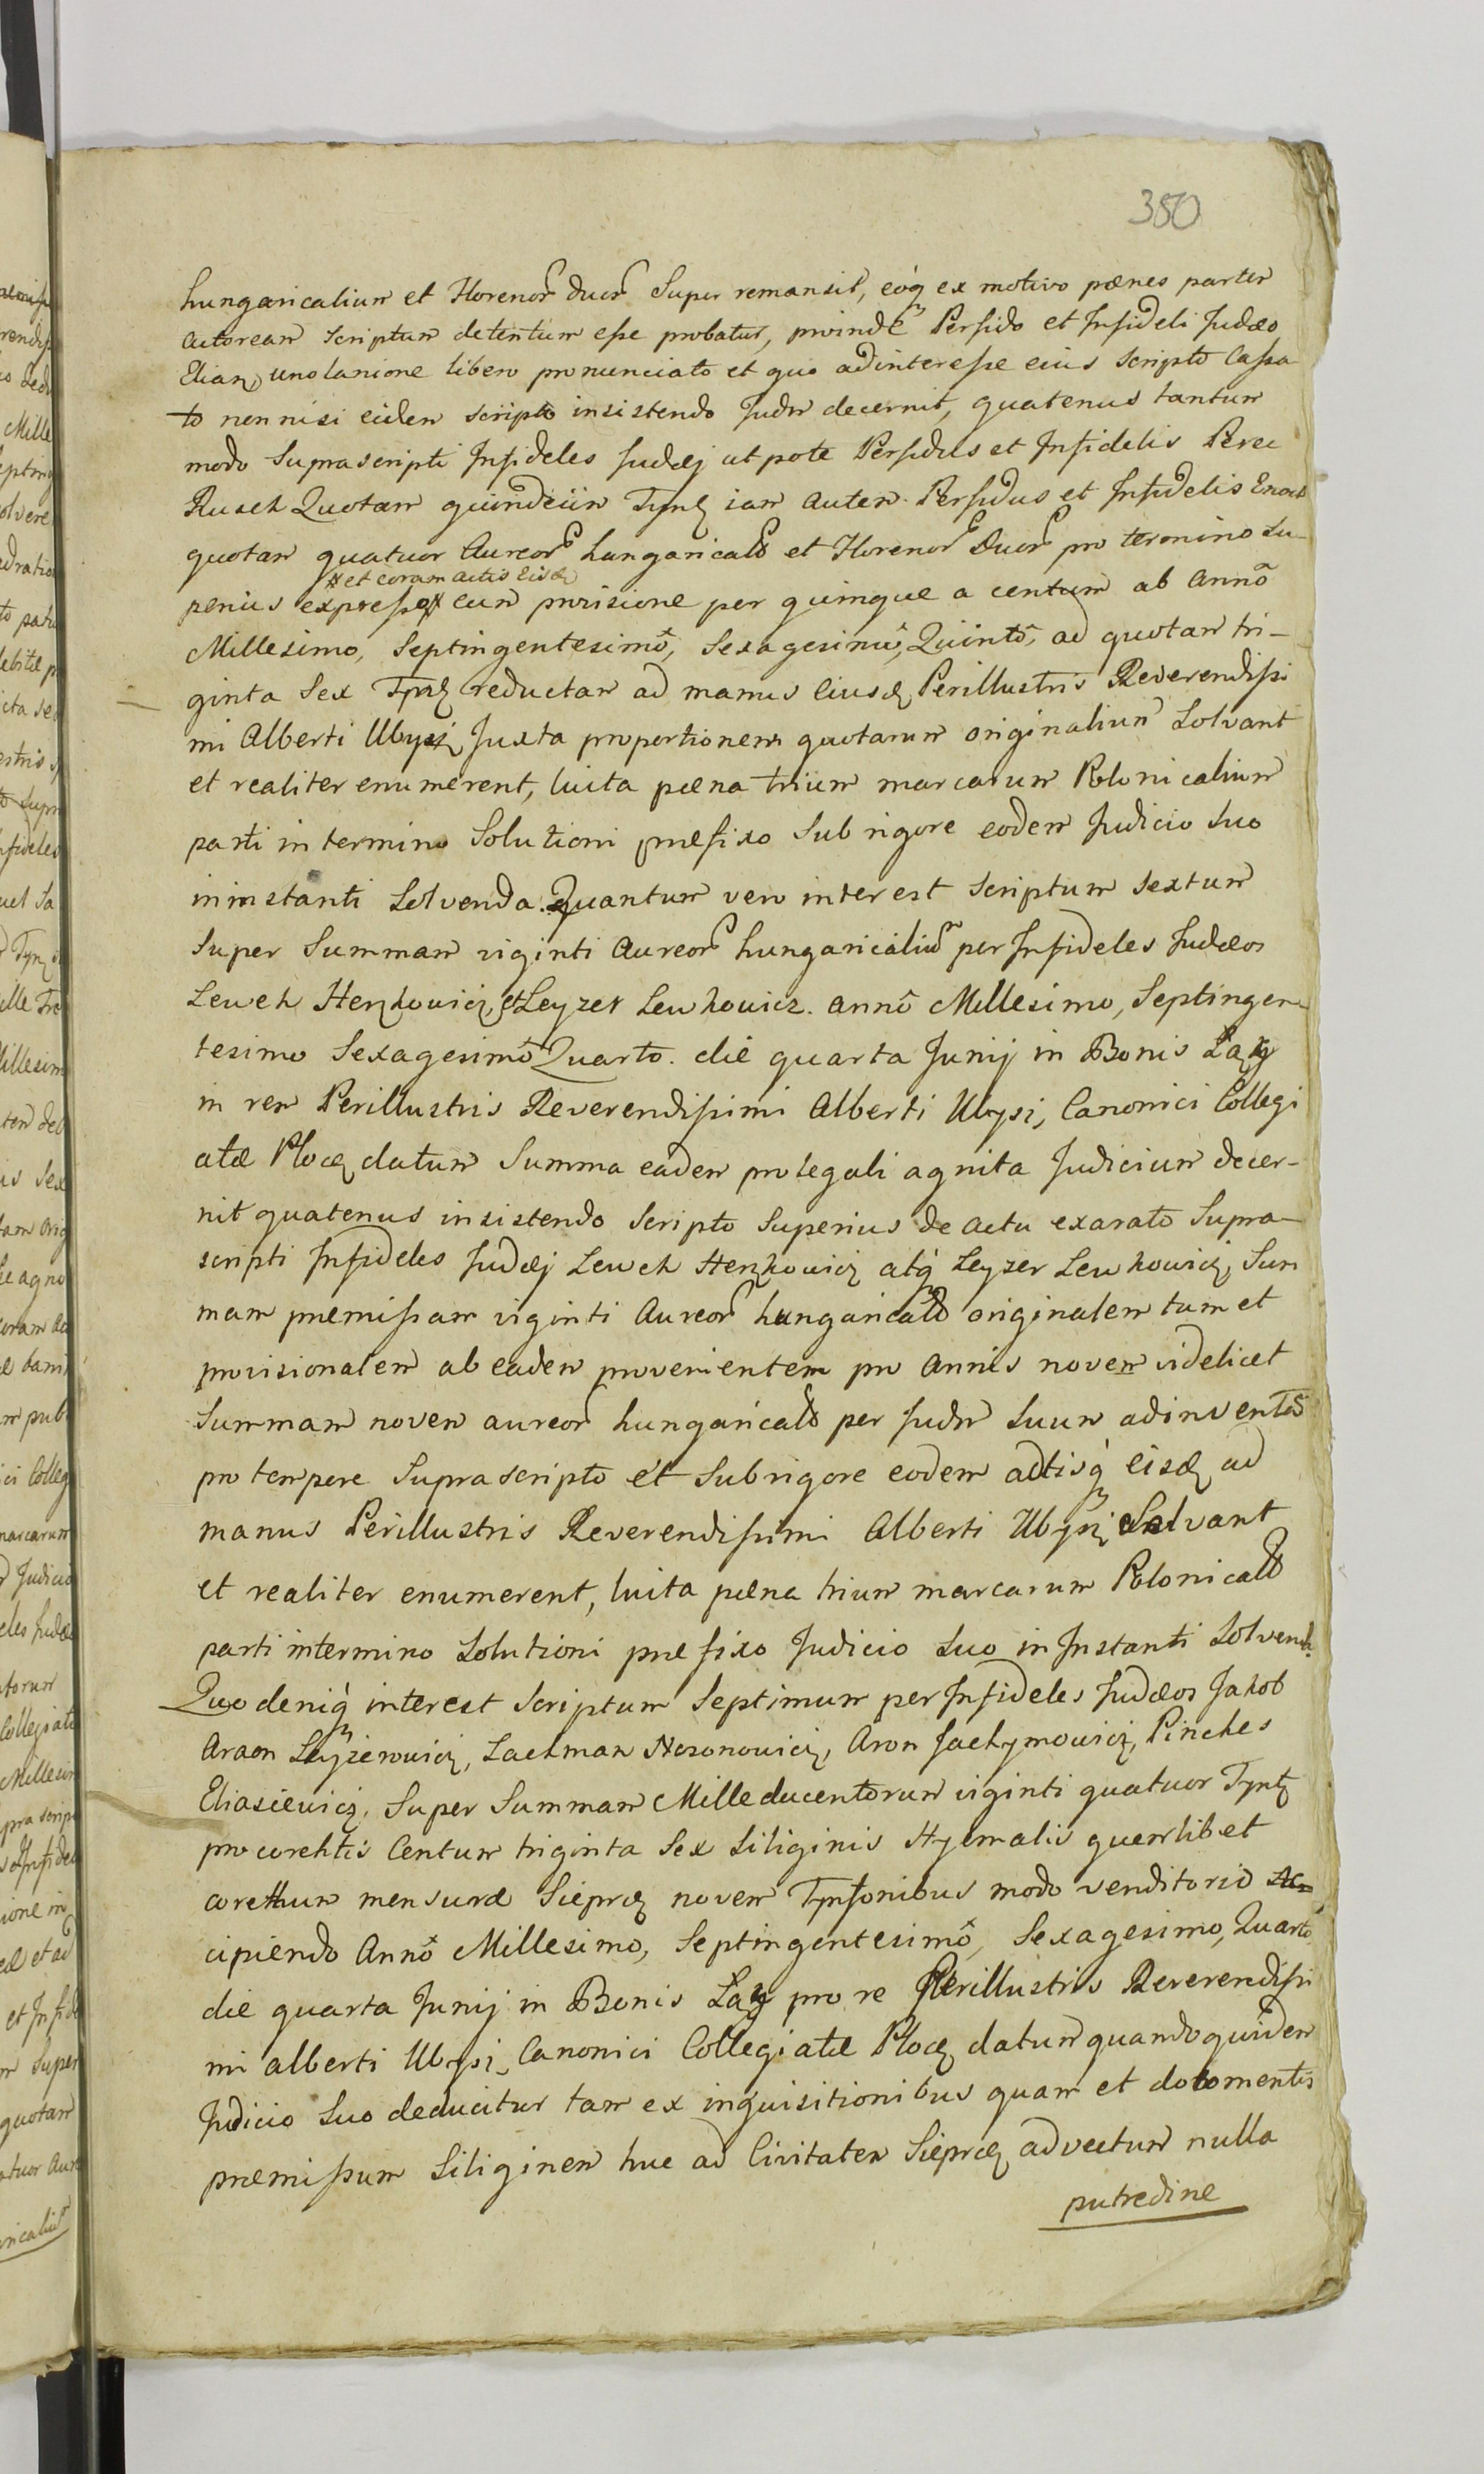 380
hungaricalium et Florenor duor Super remansit, eoq ex motivo pœnes partem
actoream scriptum detentum esse probatur, proinde Perfido et Infideli Judæo
Elian, uno lanione libero pronunciato et quo ad interesse eius scripto Cassa
to non nisi eidem scripto insistendo Judm decernit, quatenus tantum
modo Suprascripti Infideles Judæj utpote Perfidus et Infidelis Perec
Rusek Quotam quindecim Tynf iam autem Perfidus et Infidelis Enoch
quotam quatuor Aureor hungarical et Florenor Duor pro termino Su-
et coram actis Eisd
perius expresso cum provisione per quinque a centum ab Anno
Millesimo, Septingentesimo, Sexagesimo, Quinto, ad quotam tri-
ginta Sex Tynf reductam ad manus Eiusd Perillustris Reverendissi
mi Alberti Ubysz Juxta proportionem quotarum originalium Solvant
et realiter enumerent, luita pœna trium marcarum Polonicalium
parti in termino Solutioni præfixo Sub rigore eodem Judicio Suo
in instanti Solvenda. Quantum vero interest scriptum sextum
Super Summam viginti Aureor hungaricaliu per Infideles Judæos
Lewek Herszkowicz, et Leyzer Lewkowicz. anno Millesimo, Septingen-
tesimo Sexagesimo Quarto. die quarta Junij in Bonis Łazy
in rem Perillustris Reverendissimi Alberti Ubysz, Canonici Collegi
atæ Ploce datum Summa eadem pro legali agnita Judicium decer-
nit quatenus insistendo Scripto Superius de actu exarato Supra-
scripti Infideles Judæj Lewek Herszkowicz atq Leyzer Lewkowicz, Sum
mam præmissam viginti Aureor hungarical originalem tam et
provisionalem ab eadem provenientem pro Annis novem videlicet
Summam novem aureor hungarical per Judm Suum adinventas
pro tempore Suprascripto et Sub rigore eodem actisq eisd ad
manus Perillustris Reverendissimi Alberti Ubysz Solvant
et realiter enumerent, luita pœna trium marcarum Polonical
parti in termino Solutioni præfixo Judicio Suo in Instanti Solvend.
Quo deniq interest Scriptum Septimum per Infideles Judæos Jakob
Araon Leyzerowicz, Lachman Nosonowicz, Aron Jachymowicz, Pinches
Eliasiewicz, Super Summam Mille ducentorum viginti quatuor Tynf
pro corehtis Centum triginta Sex Siliginis Hyemalis quemlibet
corethum mensuræ Sieprce novem Tynfonibus modo venditorio Ac-
cipiendo Anno Millesimo, Septingentesimo, Sexagesimo, Quarto
die quarta Junij in Bonis Łazy pro re Perillustris Reverendissi
mi alberti Ubysz, Canonici Collegiatæ Ploce datum quandoquidem
Judicio Suo deducitur tam ex inquisitionibus quam et dotomentis
præmissum Siliginem huc ad Civitatem Sieprce advectum nulla
putredine